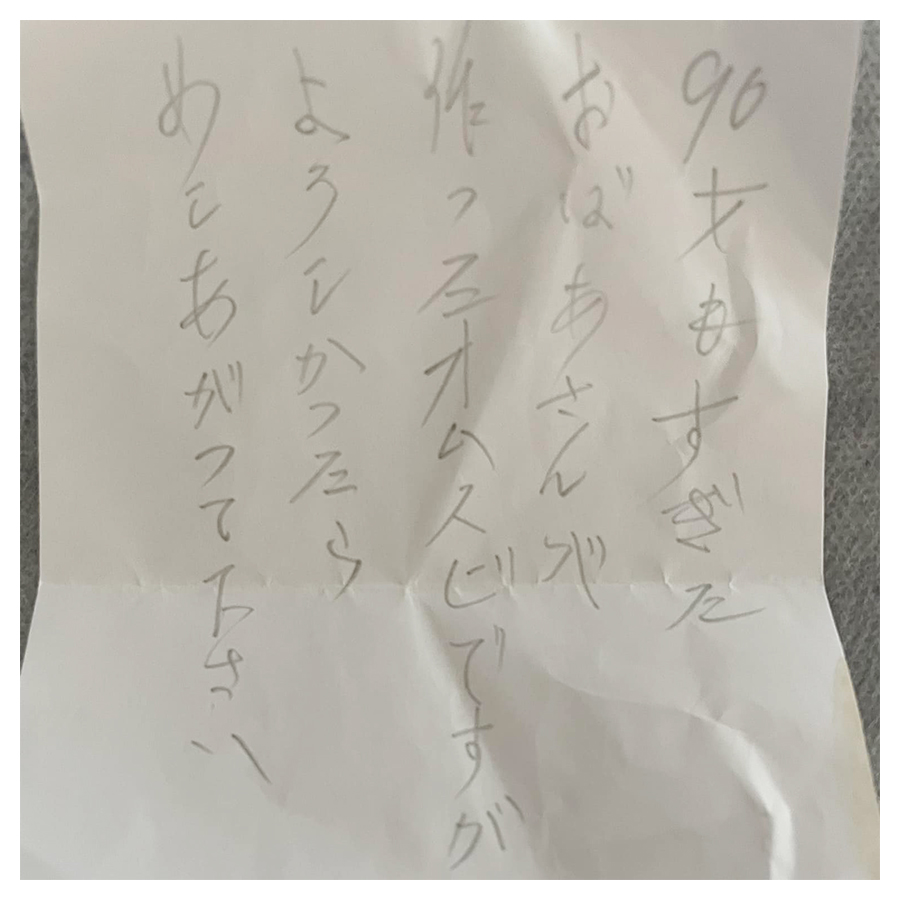 90才もすぎた
おばあさんが
作ったオムスビですが
よろしかったら
めしあがつて下さい